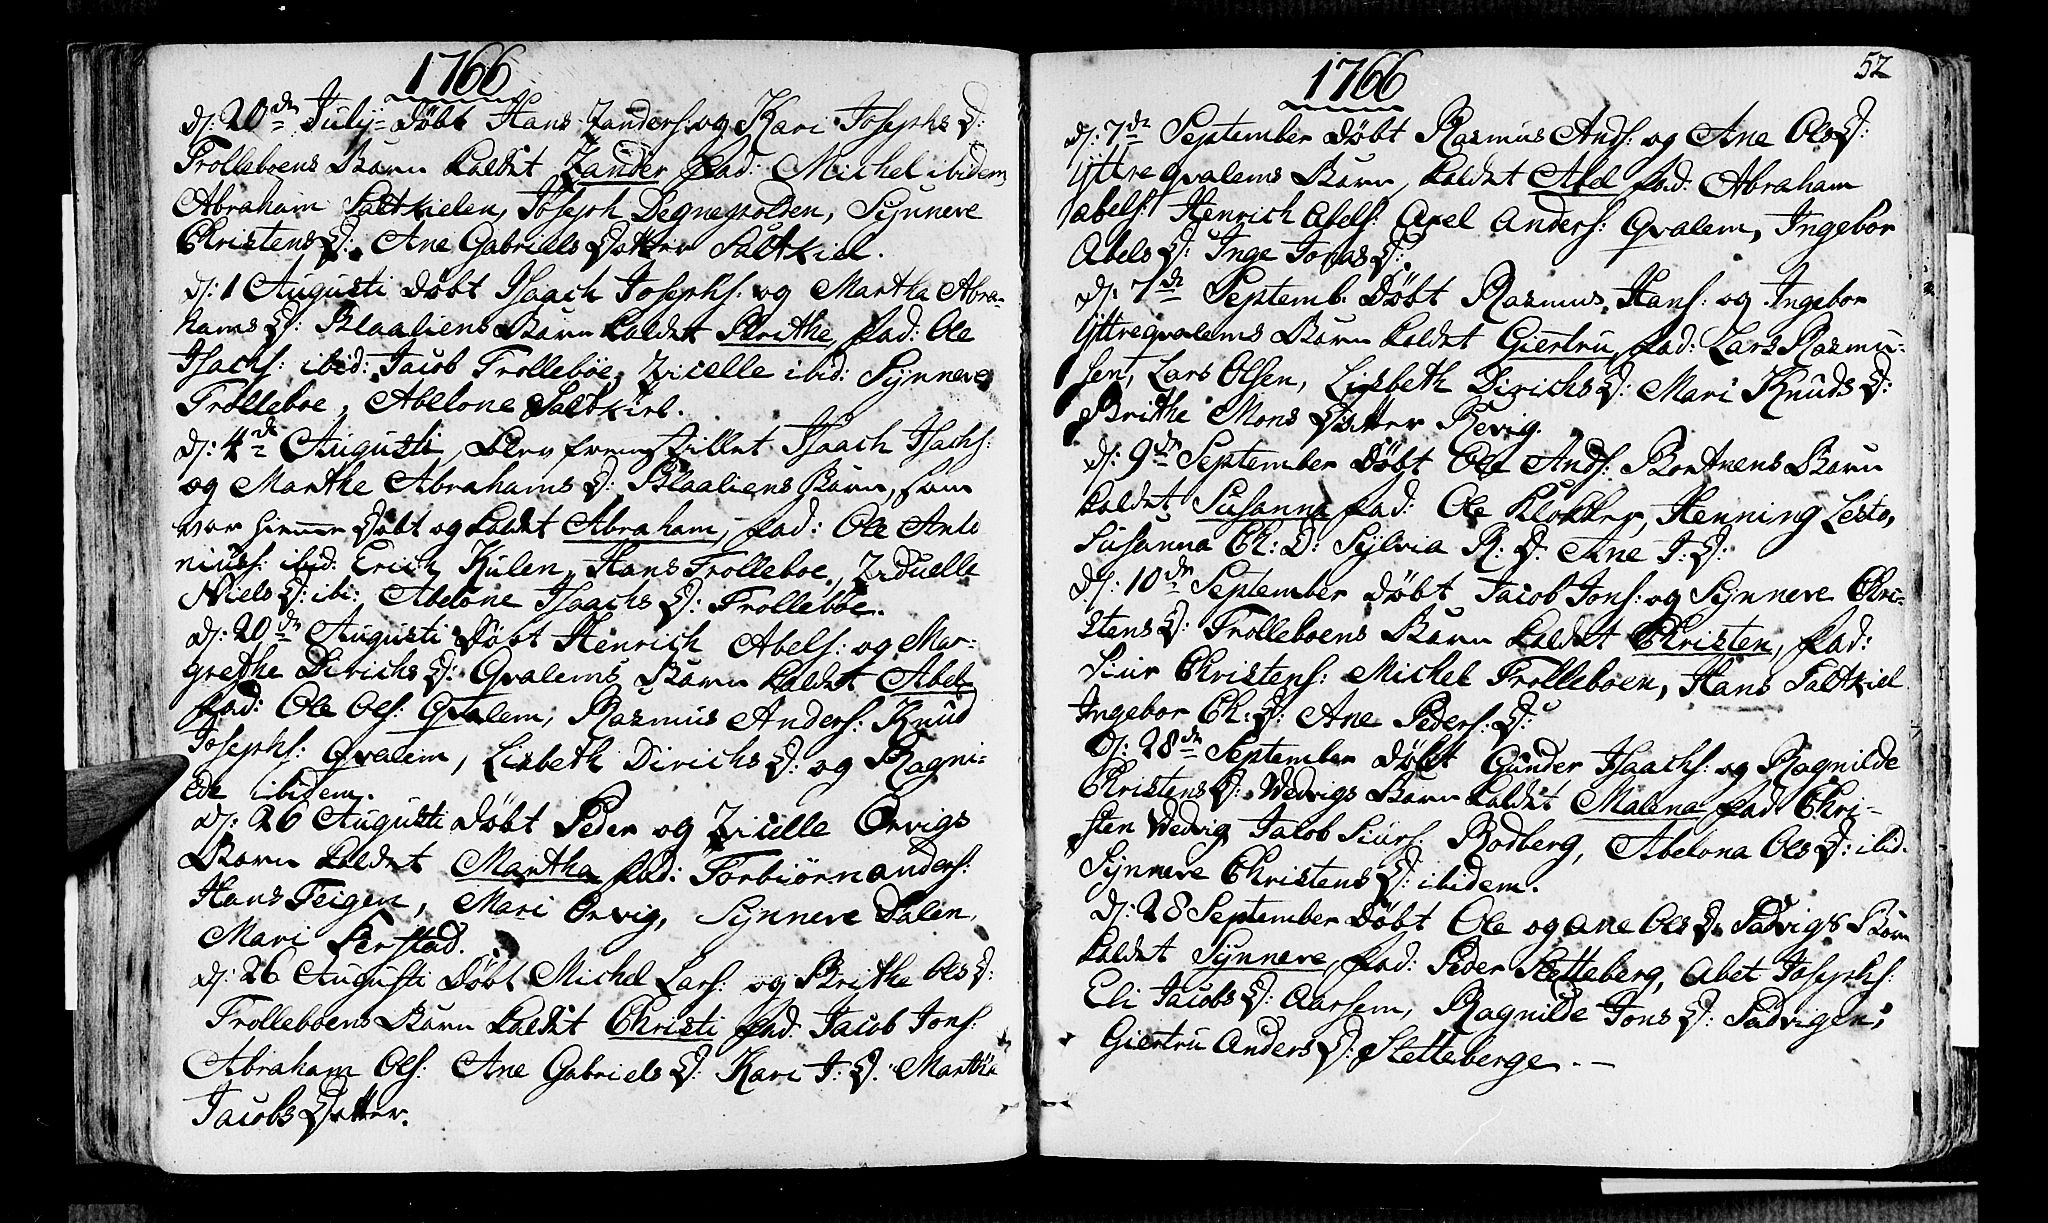 1766
D: 20de Julij Døbt Hans Zanders: og Kari Josephs D:
Trolleboens Barn kaldet Zander fad: Michel ibidem
Abraham Saltkielen, Joseph Degnepolden, Synneve
Christens D: Ane Gabriels Datter Saltkiel.
D: 1 Augusti Døbt Isaach Josephs: og Martha Abra-
hams D: Blaaliens Barn kaldet Brithe, fad: Ole
Isachs: ibid: Jacob Trollebøe, Zicelle ibid: Synneve
Trolleboe, Abelone Saltkiel.
D: 4de Augusti, blev fremstillet Isaach Isachs:
og Marthe Abrahams D: Blaaliens Barn, som
var hiemme Døbt og kaldet Abraham, fad: Ole Anto
niuss: ibid: Erich Kulen, Hans Trolleboe,
Niels D: ibi: Abelone Isaachs D: Trollebøe.
D: 20de Augusti Døbt Henrich Abels: og Mar-
grethe Dirichs D: Qvalems Barn kaldet Abel
fad: Ole Ols: Qvalem, Rasmus Anders: Knud
Josephs: Qvalem, Lisbeth Dirichs D: og Ragni-
lde ibidem.
D: 26 Augusti Døbt Peder og Zicelle Ørvigs
Barn kaldet Martha fad: Torbiørn Anders:
Hans Teigen, Mari Ørvig, Synneve Dalen,
Mari Ferstad.
D: 26 Augusti Døbt Michel Lars: og Brithe Ols D:
Trolleboens Barn kaldet Christi fad: Jacob Jons:
Abraham Ols: Ane Gabriels D: Kari J: D: Martha
Jacobs Datter.
1766
52
D: 7de September Døbt Rasmus Ands: og Ane Ols D:
Yttreqvalems Barn, kaldet Abel fad: Abraham
Abels: Henrich Abels: Axel Anders: Qvalem, Ingebor
Abels D: Inge Jonas D:
D: 7de Septemb. Døbt Rasmus Hans: og Ingebor
Yttreqvalems Barn kaldet Giertru, fad: Lars Rasmu-
sen, Lars Olsen, Lisbeth Dirichs D: Mari Knuds D:
Brithe Mons Datter Revig.
D: 9de September Døbt Ole Ands: Bortnens Barn
kaldet Susanna fad: Ole Klokker, Henning Lesto,
Susanna Ch: D: Sylvia R: D: Ane J: D:
D: 10de September Døbt Jacob Jons: og Synneve Chri-
stens D: Trolleboens Barn kaldet Christen, fad:
Siur Christens: Michel Trolleboen, Hans Saltkiel
Ingebor Ch: D: Ane Peders: D:
D: 28de September Døbt Gunder Isaachs: og Ragnilde
Christens D: Vedvigs Barn kaldet Malena fad Chri-
sten Vedvig Jacob Siurs Rodberg, Abelona Ols D: ibid.
Synneve Christens D: ibidem.
D: 28 September Døbt Ole og Ane Ols D: Sadvigs Barn
kaldet Synneve, fad: Peder Sletteberg, Abet Josephs:
Eli Jacobs D: Aarsem, Ragnilde Jons D: Sadvigen,
Giertru Anders D: Sletteberge. -